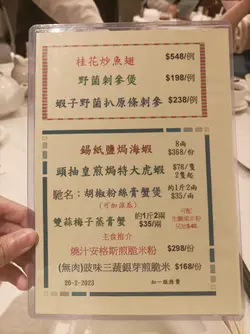 桂花炒魚翅 $548/例
野菌刺參煲 $198/例
蝦子野菌扒原條刺參 $238/例
錫紙鹽焗海蝦 8兩 $368/份
頭抽皇煎焗特大虎蝦 $78/隻 2隻起
馳名:胡椒粉絲膏蟹煲 約1斤2兩 $35/兩
(可加涼瓜)
雙蒜梅子蒸膏蟹 約1斤2兩 $35/兩
可配 生磨瀨米粉 另加$48.
主食推介
燒汁安格斯煎脆米粉 $298/份
(無肉)豉味三蔬銀芽煎脆米 $168/份
20-2-2023 加一服務費